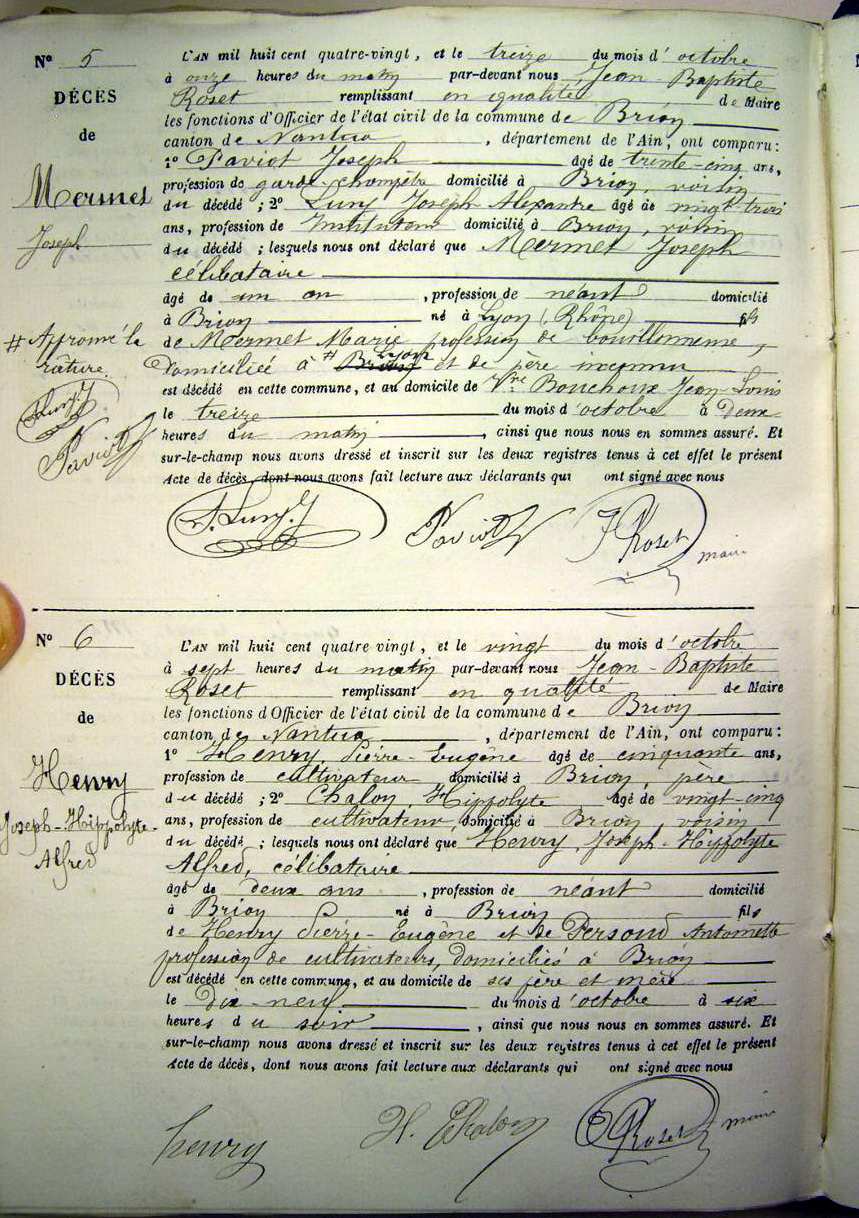 N° 5
DÉCÈS
de
Mermet
Joseph
# Approuvé la
râture.
Luny J
Paviot
L'AN mil huit cent quatre-vingt, et le treize du mois d'octobre
à onze heures du matin par-devant nous Jean-Baptiste
Roset remplissant en qualité de Maire
les fonctions d'Officier de l'état civil de la commune de Brion
canton de Nantua, département de l'Ain, ont comparu:
1° Paviot Joseph âgé de trente-cinq ans,
profession de garde-champêtre domicilié à Brion, voisin
du décédé; 2° Luny Joseph Alexandre âgé de vingt-trois
ans, profession de Instituteur domicilié à Brion, voisin
du décédé; lesquels nous ont déclaré que Mermet Joseph
célibataire
âgé de un an, profession de néant domicilié
à Brion né à Lyon (Rhône) fils
de Mermet Marie profession de
domiciliée à # Brion Lyon et de père inconnu
est décédé en cette commune, et au domicile de Vve Bouchoux Jean Louis
le treize du mois d'octobre à Deux
heures du matin, ainsi que nous nous en sommes assuré. Et
sur-le-champ nous avons dressé et inscrit sur les deux registres tenus à cet effet le présent
Acte de décès, dont nous avons fait lecture aux déclarants qui ont signé avec nous
A. Luny. J Paviot JB Roset maire
N° 6
DÉCÈS
de
Henry
Joseph-Hippolyte-
Alfred
L'AN mil huit cent quatre-vingt, et le vingt du mois d'octobre
à sept heures du matin par-devant nous Jean-Baptiste
Roset remplissant en qualité de Maire
les fonctions d'Officier de l'état civil de la commune de Brion
canton de Nantua, département de l'Ain, ont comparu:
1° Henry Pierre-Eugène âgé de cinquante ans,
profession de cultivateur domicilié à Brion, père
du décédé; 2° Chalon, Hippolyte âgé de vingt-cinq
ans, profession de cultivateur, domicilié à Brion, voisin
du décédé; lesquels nous ont déclaré que Henry, Joseph-Hippolyte
Alfred, célibataire
âgé de deux ans, profession de néant domicilié
à Brion né à Brion fils
de Henry Pierre-Eugène et de Persoud Antoinette
profession de cultivateurs, domiciliés à Brion
est décédé en cette commune, et au domicile de ses père et mère
le Dix-neuf du mois d'octobre à six
heures du soir, ainsi que nous nous en sommes assuré. Et
sur-le-champ nous avons dressé et inscrit sur les deux registres tenus à cet effet le présent
Acte de décès, dont nous avons fait lecture aux déclarants qui ont signé avec nous
henry H. Chalon Roset maire